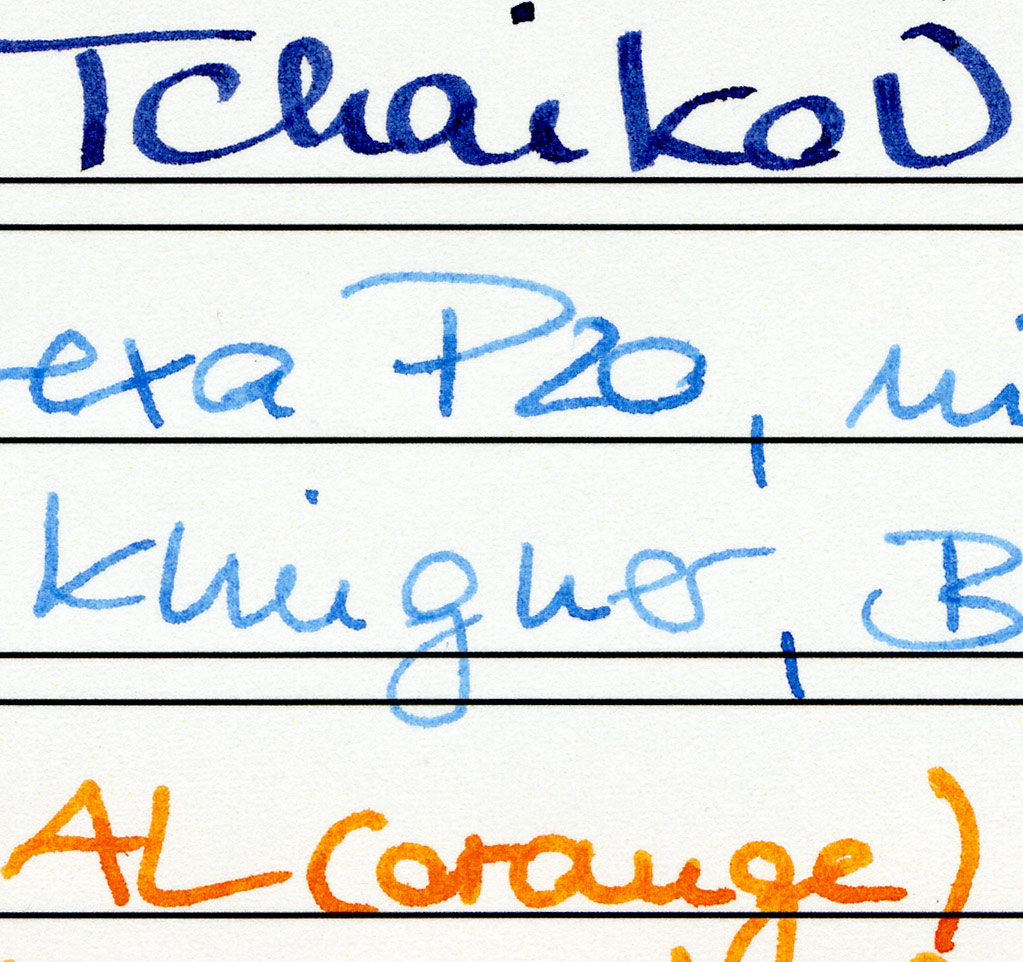 Tchaikov
exa P20, mi
Klingno, B
AL (orange)